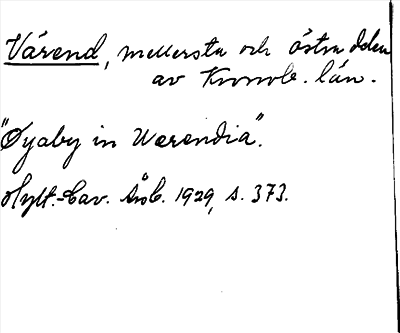 Värend, mellersta och östra delen
av Kronob. län.
"Øyaby in Wærendia".
Hylt.-Cav. Årsb. 1929, s. 373.